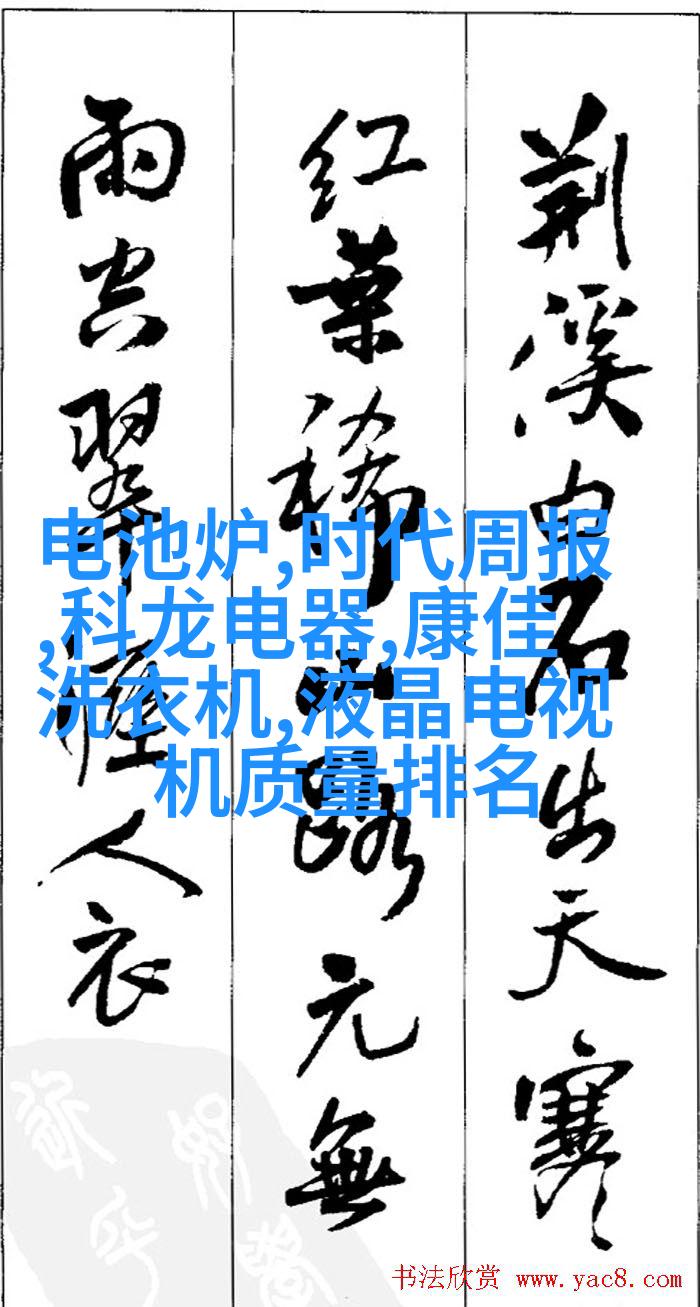 荆溪白石出天寒
红葉稀山路元無
雨空翠溼人衣
电池炉,时代周报
,科龙电器,康佳
洗衣机,液晶电视
机质量排名
书法欣赏 www.yac8.com